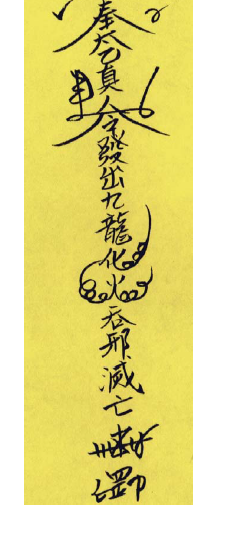 奉太乙真人令發出九龍化火吞邪滅亡 罡印